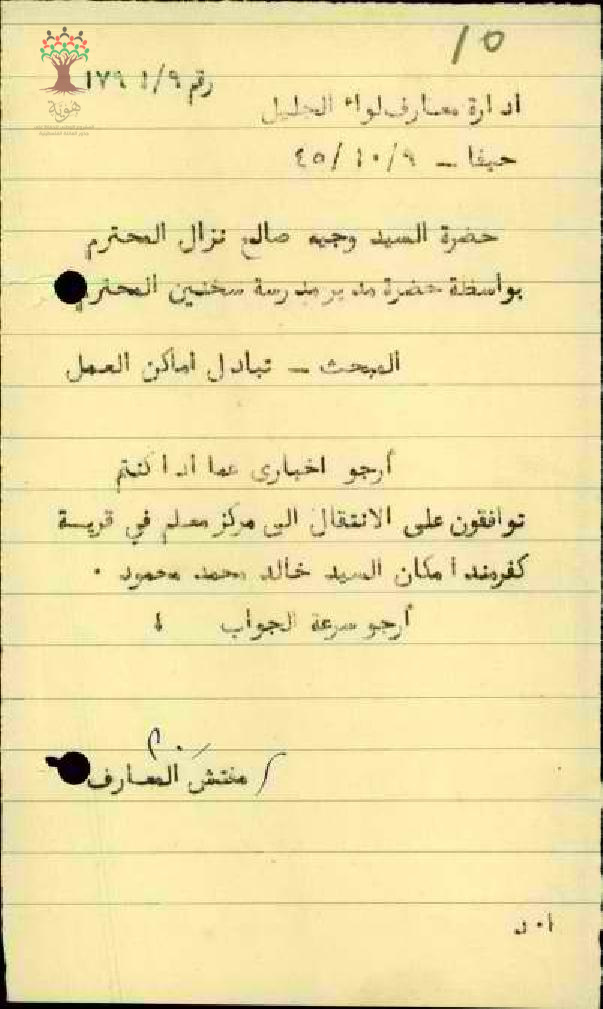 ١٥
رقم ١/٩ ١٧٩
هوية
ادارة معارف لواء الجليل
حيفا – ٤٥/١٠/٩
حضرة السيد وجيه صالح نزال المحترم
بواسطة حضرة مدير مدرسة سخنين المحترم
المبحث – تبادل اماكن العمل
أرجو اخبارى عما اذا كنتم
توافقون على الانتقال الى مركز معلم في قرية
كفرمندا مكان السيد خالد محمد محمود ٠
أرجو سرعة الجواب
مفتش المعارف
أ٠ د